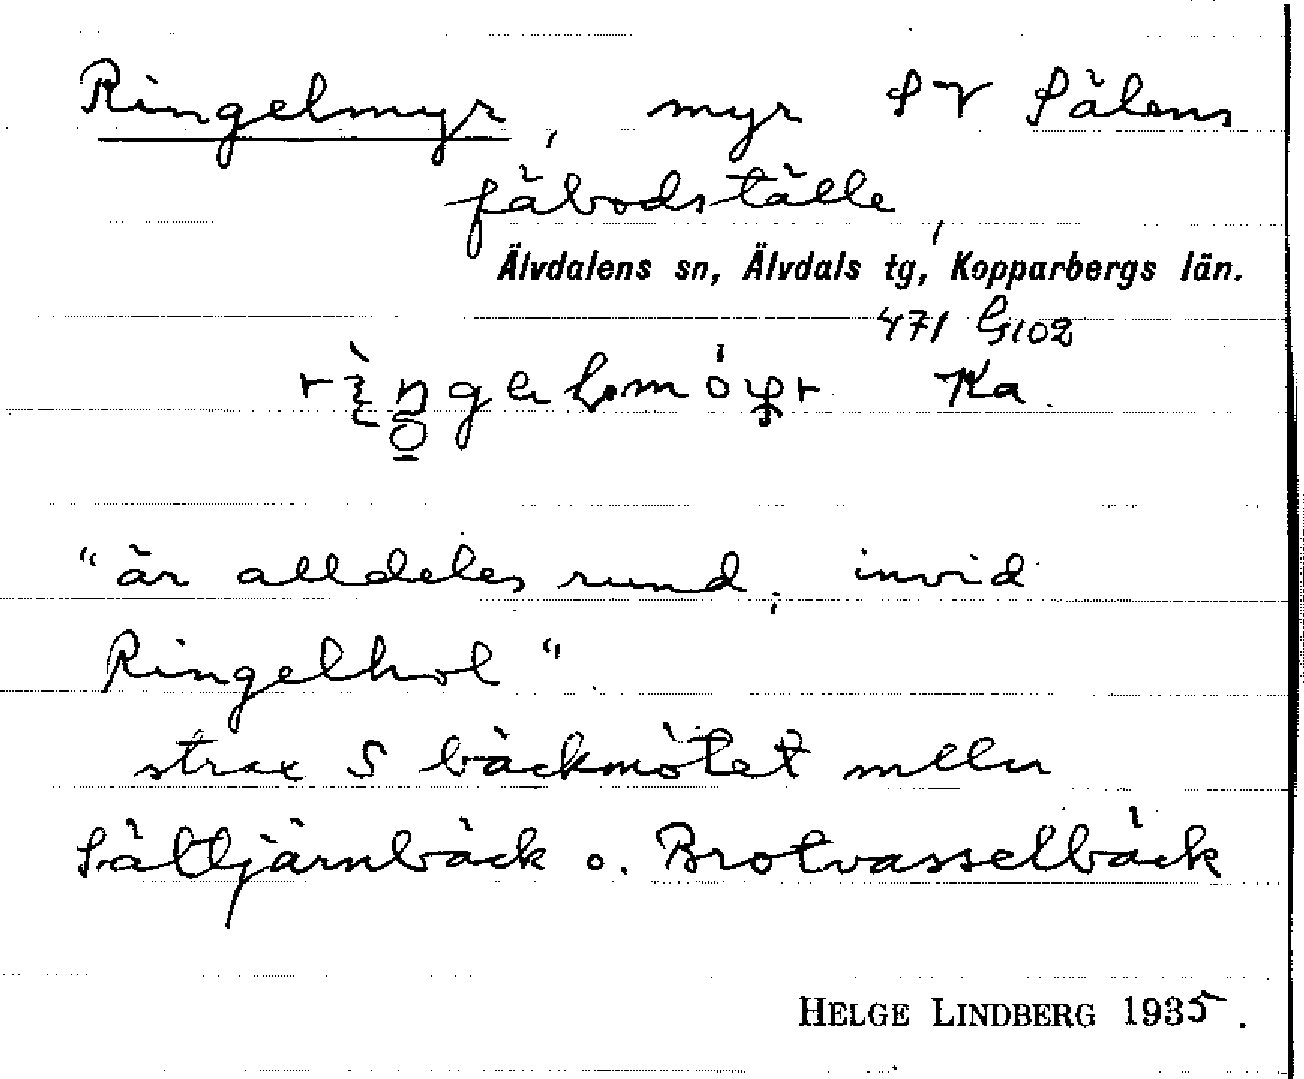 Ringelmyr, myr SV Sälens
fäbodställe,
Älvdalens sn, Älvdals tg, Kopparbergs län.
471 G102
Ka
"är alldeles rund, invid
Ringelhol"
strax S bäckmötet mellan
Sältjärnbäck o. Brotvasselbäck
HELGE LINDBERG 1935.